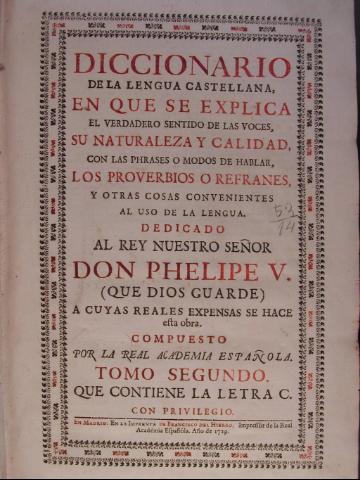 DICCIONARIO
DE LA LENGUA CASTELLANA,
EN QUE SE EXPLICA
EL VERDADERO SENTIDO DE LAS VOCES,
SU NATURALEZA Y CALIDAD,
CON LAS PHRASES O MODOS DE HABLAR,
LOS PROVERBIOS O REFRANES,
Y OTRAS COSAS CONVENIENTES
AL USO DE LA LENGUA.
DEDICADO
AL REY NUESTRO SEÑOR
DON PHELIPE V.
(QUE DIOS GUARDE)
A CUYAS REALES EXPENSAS SE HACE
esta obra.
COMPUESTO
POR LA REAL ACADEMIA ESPAÑOLA.
TOMO SEGUNDO.
QUE CONTIENE LA LETRA C.
CON PRIVILEGIO.
EN MADRID: EN LA IMPRENTA DE FRANCISCO DEL HIERRO, Impressor de la Real
Academia Española. Año de 1729.